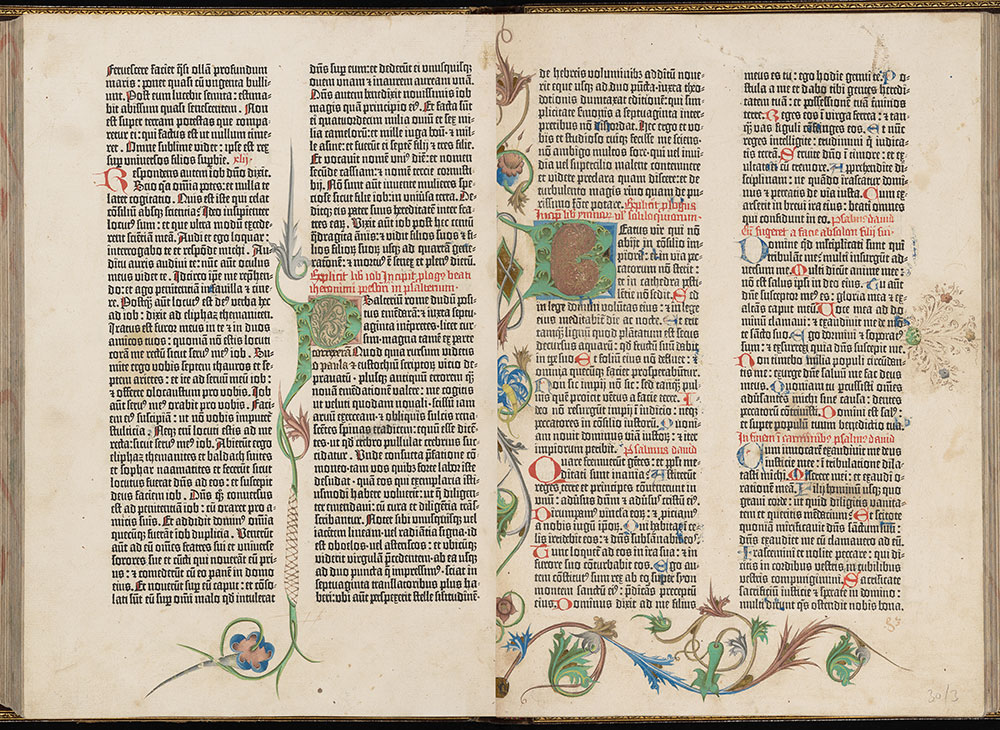 feruescere faciet q̃si ollã profundum
maris: ponet quasi cũ ungenta bulli-
unt. Post eum lucebit semita: estima-
bit abissum quasi senescentem. Non
est super terram potestas que compa-
retur ei: qui factus est ut nullum time-
ret. Omne sublime videt: ipse est rex
sup universos filios supbie. xlij
Respondens autem iob dño dixit.
Scio qa omnia potes: et nulla te
latet cogitatio. Quis est iste qui celat
cõsiliũ absq; sciencia? Ideo insipienter
locutus sum: et que ultra modũ excede-
rent sciẽtiã meã. Audi et ego loquar:
interrogabo te et respõde michi. Au-
ditu auris audiui te: nũc aũt oculus
meus videt te. Idcirco ipse me reprehen-
do: et ago penitentiã in fauilla & cine-
re. Postq̃ aũt locutus est deus verba hec
ad iob: dixit ad eliphaz themaniten.
Iratus est furor meus in te & in duos
amicos tuos: quoniã nõ estis locuti
corã me rectũ sicut seru⁹ me⁹ iob. Su-
mite ergo vobis septem thauros et se-
ptem arietes: et ite ad seruũ meũ iob:
& offerte olocaustum pro vobis. Iob
aũt seru⁹ me⁹ orabit pro vobis. Faci-
em ei⁹ suscipiã: ne nõ vobis imputet
stulticia. Neq; enĩ locuti estis ad me
recta: sicut seru⁹ me⁹ iob. Abierunt ergo
eliphaz themanites et baldach suites
et sophar naamatites et fecerũt sicut
locutus fuerat dñs ad eos: et suscepit
deus faciem iob. Dñs q̃ conuersus
est ad penitentiã iob: cũ oraret pro a-
micis suis. Et addidit domin⁹ omnia
quecũq; fuerãt iob duplicia. Venerũt
aũt ad eũ omnes fratres sui et uniuerse
sorores sue et cũcti qui nouerãt eũ pri-
us: & comederũt cũ eo panẽ in domo
eius. Et mouerũt sup eũ caput: et cõso-
lati sũt eũ sup omni malo qd intulerat
dñs sup eum: et dederũt ei unusquisq;
ouem unam & inaurem auream unam.
Dñs autem benedixit nouissimis iob
magis quam principio ei⁹. Et facta sũt
ei quatuordecim milia ouiũ et sex mi-
lia camelorũ: et mille iuga boũ & mil-
le asine: et fuerũt ei septẽ filij & tres filie.
Et vocauit nomẽ uni⁹ diẽ: et nomen
secũde cassiam: & nomẽ tercie cornusti-
bij. Nõ sunt aũt inuente mulieres spe-
ciose sicut filie iob: in uniusa terra. De-
ditq; eis pater suus hereditatẽ inter fra-
tres earũ. Vixit aũt iob post hec centũ
q̃dragita ãnis: & vidit filios suos &
filios filiorũ suorũ usq; ad quartã gene-
rationẽ: & mortu⁹ ẽ senex & plen⁹ dierũ.
Explicit liber iob Incipit plogus beati
iheronimi presbiteri in psalterium
Psalterium rome dudũ posi-
tus emẽdarã: & iuxta septu-
aginta interpretes: licet cur-
sim: magna tamẽ ex parte
correxerã. Quod quia rursum videtis
o paula & eustochiũ scriptorũ vicio de-
prauatũ: plusq; antiquũ errorem q̃
nouam emẽdationẽ valere: me cogitis
ut veluti quodam nouali: scissũ iam
aruũ exerceam: & obliquis sulcis rena-
scẽtes spinas eradicem: equũ esse dicẽ-
tes: ut qd crebro pullulat crebrius suc-
cidatur. Unde consueta prefatione cõ-
moneo: tam vos quibz forte labor iste
desudat. quã eos qui exemplaria isti-
usmodi habere voluerit: ut q̃ diligen-
ter emendaui: cum cura et diligẽtia trãs-
scribantur. Notet sibi unusquisq; vel
iacentem lineam: vel radiãtia signa: id
est obelos: vel astericos: et ubicũq;
viderit virgulã precedentem: ab ea usq;
ad duo puncta q̃ impressim⁹: sciat in
septuaginta translatoribus plus ha-
beri: ubi aũt perspexerit stelle similitudinẽ
de hebreis voluminibz additũ noue-
rit: eque usq; ad duo pũcta: iuxta theo-
dotionis dumtaxat editionẽ: qui sim-
plicitate sermonis a septuaginta inter-
pretibus nõ discordat. Hec ergo et vo-
bis et studioso cuiq; fecisse me sciens:
nõ ambigo multos fore: qui vel inui-
dia vel supercilio malent contemnere
& videre preclara quam discere: et de
turbulento magis riuo quam de pu-
rissimo fonte potare. Explicit plogus
Incipit liber ymnorum vel soliloquiorum
Beatus vir qui nõ
abijt in cõsilio im-
piorũ: & in via pec-
catorum nõ stetit:
& in cathedra pesti-
lẽtie nõ sedit. Sed
in lege domini voluntas eius: & in lege
eius meditabit die ac nocte. Et erit
tamq̃ lignũ quod plantatum est secus
decursus aquarũ: qd fructũ suũ dabit
in tpe suo Et foliũ eius nõ defluet: &
omnia quecũq; faciet prosperabuntur.
Non sic impij nõ sic: sed tamq̃ pul-
uis quẽ proicit ventus a facie terre. I-
deo nõ resurgũt impij ĩ iudicio: neq;
peccatores in consilio iustorũ. Quoni-
am nouit dominus viã iustorũ: & iter
impiorum peribit. Psalmus dauid
Quare fremuerũt gẽtes: et ppli me-
ditati sunt inania? Astiterũt
reges terre et principes conuenerũt in
unũ: aduersus dñm & aduersus cristũ ei⁹.
Dirumpam⁹ vincla eorũ: & piciam⁹
a nobis iugũ ipsorũ. Qui habitat ĩ ce-
lis irridebit eos: & dñs subsãnabit eos.
Tunc loquet ad eos in ira sua: & in
furore suo cõturbabit eos. Ego au-
tem cõstitut⁹ sum rex ab eo super syon
montem sanctũ ei⁹: predicãs preceptũ
eius. Dominus dixit ad me filius
meus es tu: ego hodie genui te. Po-
stula a me et dabo tibi gentes heredi-
tatem tuã: et possessionẽ tuã t̃minos
terre. Reges eos ĩ virga ferrea: & tam-
q̃ vas figuli cõfringes eos. Et nũc
reges intelligite: erudimini qui iudica-
tis terrã. Seruite dño ĩ timore: et ex-
ultate ei cũ tremore. Apprehendite di-
sciplinam: ne quãdo irascatur domi-
nus & pereatis de via iusta. Cum ex-
arserit in breui ira eius: beati omnes
qui confidunt in eo. Psalmus dauid
Cum fugeret a facie absalon filij sui.
Domine qd multiplicati sunt qui
tribulãt me: multi insurgũt ad-
uersum me. Multi dicũt anime mee:
nõ est salus ipsi in deo eius. Tu aũt
dñe susceptor me⁹ es: gloria mea & ex-
altãs caput meũ. Voce mea ad do-
minũ clamaui: & exaudiuit me de mõ-
te sãcto suo. Ego dormiui & soporat⁹
sum: & exsurrexi quia dñs suscepit me.
Non timebo milia populi circũdan-
tis me: exurge dñe saluũ me fac deus
meus. Quoniam tu percussisti omẽs
aduersantes michi sine causa: dentes
peccatorũ cõtriuisti. Domini est sal⁹:
& super populum tuum benedictio tua.
In finem ĩ carminibz psalmus dauid
Cum inuocarẽ exaudiuit me deus
iusticie mee: ĩ tribulatione dila-
tasti michi. Miserere mei: et exaudi o-
rationẽ meã. Filij hominũ usq; quo
graui corde: ut quid diligitis vanita-
tem et queritis mendaciũ? Et scitote
quoniã mirificauit dñs sanctũ suũ:
dñs exaudiet me cũ clamauero ad eũ.
Irascemini et nolite peccare: qui di-
citis in cordibus vestris in cubilibus
vestris compungimini. Sacrificate
sacrificiũ iusticie & sperate in domino:
multi dicũt q̃s ostendit nobis bona.